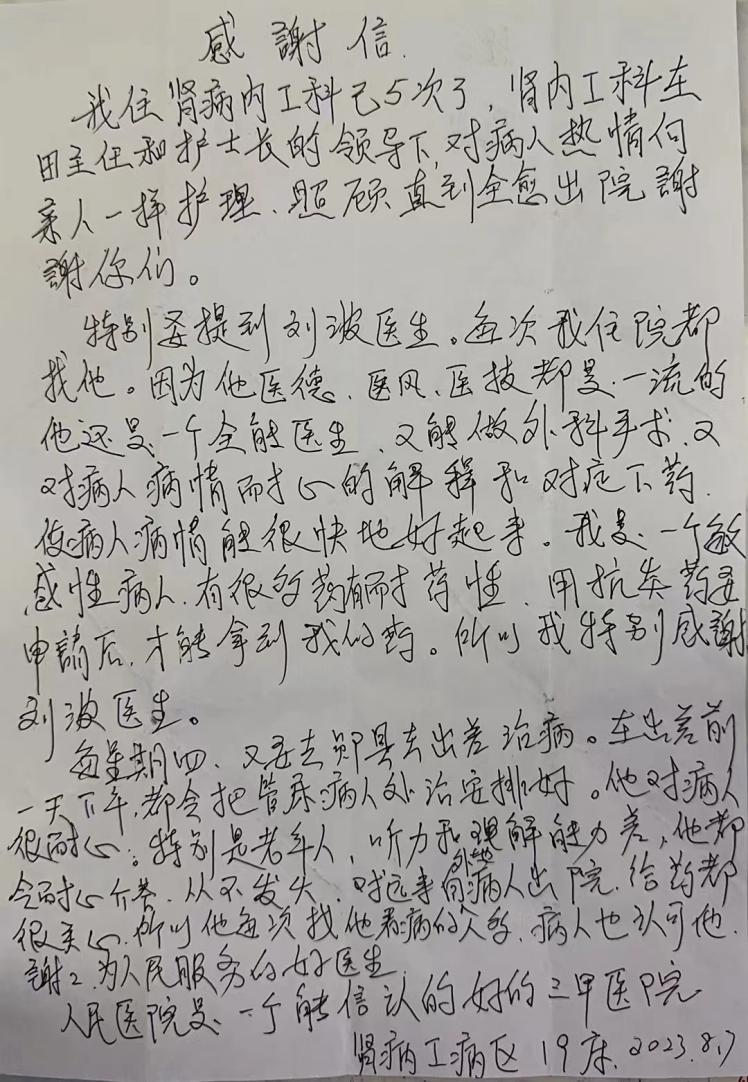 感謝信.
我住肾病内工科已5次了，肾内工科在
田主任和护士长的领导下,对病人热情何
亲人一样护理、照顾直到全愈出院謝
謝你们。
特别要提到刘波医生。每次我住院都
找他。因为他医德、医风、医技都是一流的
他还是一个全能医生、又能做外科手术、又
对病人病情耐心的解释和对症下药.
使病人病情能很快地好起来。我是一个敏
感性病人、有很多药有耐药性、用抗类药要
申請后,才能拿到我的药。所以我特别感謝
刘波医生。
每星期四、又要去郧县去出差治病。在出差前
一天下午,都会把管床病人处治安排好。他对病人
很耐心。特别是老年人，听力和理解能力差,他都
会耐心介答、从不发火、对远来的外地病人出院、给药都
很关心,所以他每次找他看病的人多、病人也认可他.
謝2.为人民服务的好医生
人民医院是一个能信认的好的三甲医院
肾病工病区19床.2023.8.7